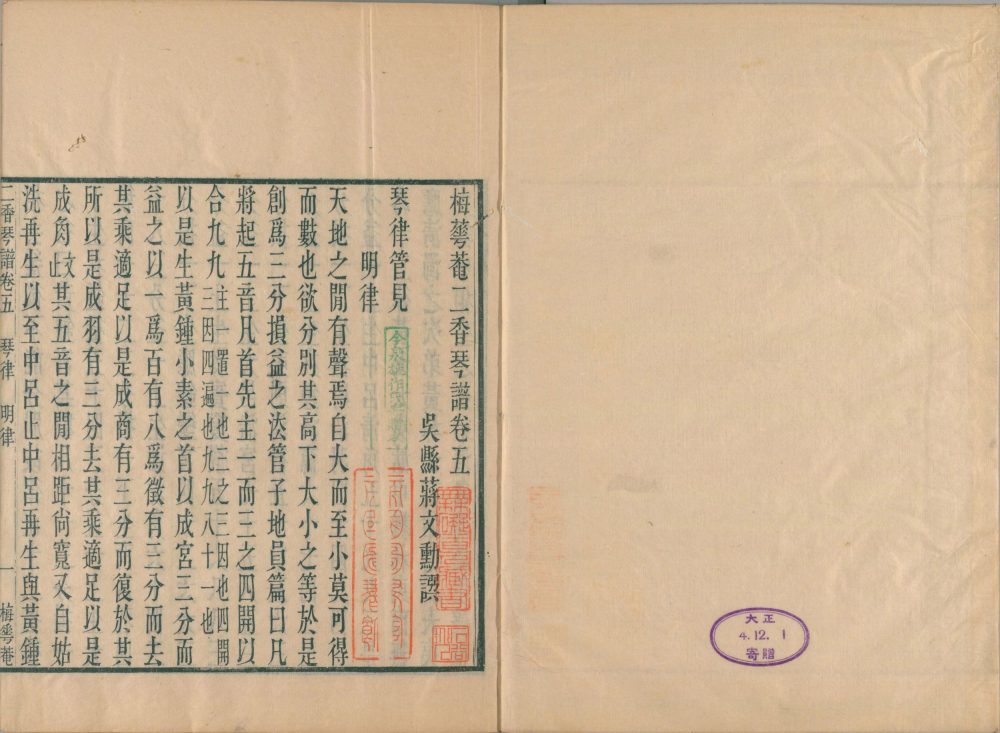 梅蕚菴二香琴譜卷五
吳縣蔣文勳譔
琴律管見
明律
天地之閒有聲焉自大而至小莫可得
而數也欲分別其高下大小之等於是
創爲三分損益之法管子地員篇曰凡
將起五音凡首先主一而三之四開以
合九九主一置一地三之三因地四開三因四遍也九九八十一也
以是生黃鍾小素之首以成宮三分而
益之以一爲百有八爲徵有三分而去
其乘適足以是成商有三分而復於其
所以是成羽有三分去其乘適足以是
成角文止其五音之閒相距尙寬又自姑
洗再生以至中呂止中呂再生與黃鍾
二香琴譜卷五 琴律 明律 一 梅蕚菴
大正
4.12.1
寄贈